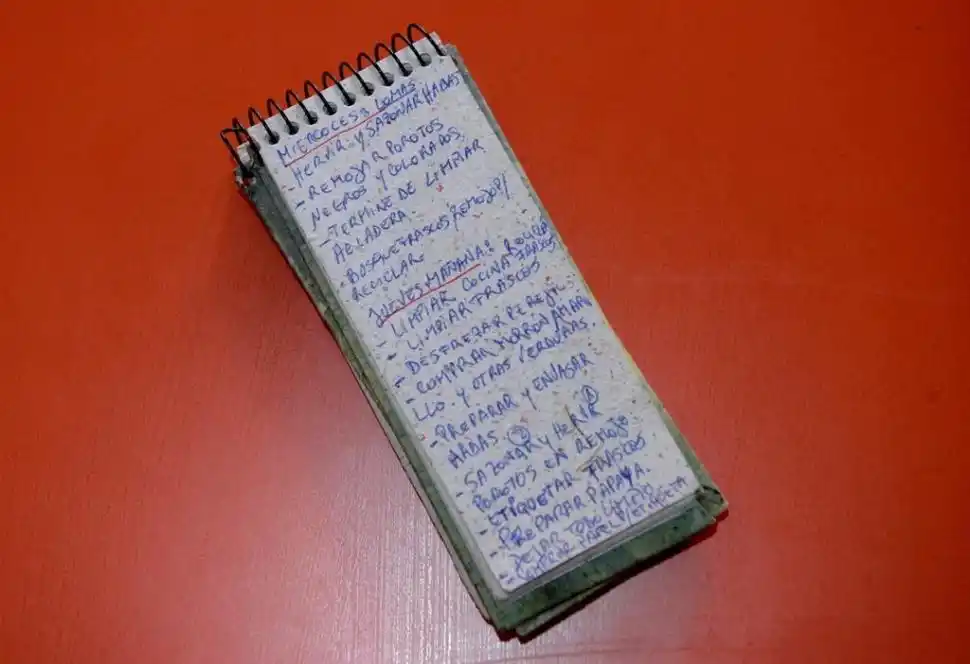 MIERCOLES LOMAS
- HERBIR Y SAZONAR HABAS
- REMOJAR POROTOS
NEGROS Y COLORADOS.
- TERMINE DE LIMPIAR
HELADERA.
- FRASCOS REMOJAR/
RECICLAR.
JUEVES MAÑANA:
- LIMPIAR COCINA
- LIMPIAR FRASCOS FRASCOS
- PEREJIL.
- COMPRAR MORRON AMARI
LLO. Y OTRAS VERDURAS.
- PREPARAR Y ENVASAR
HABAS. ②
- SAZONAR Y HERIR ①
POROTOS EN REMOJO.
- ETIQUETAR FRASCOS
- PREPARAR PAPAYA.
- DEJAR TODO LIMPIO
- COMPRAR PAPEL P/ETIQUETA